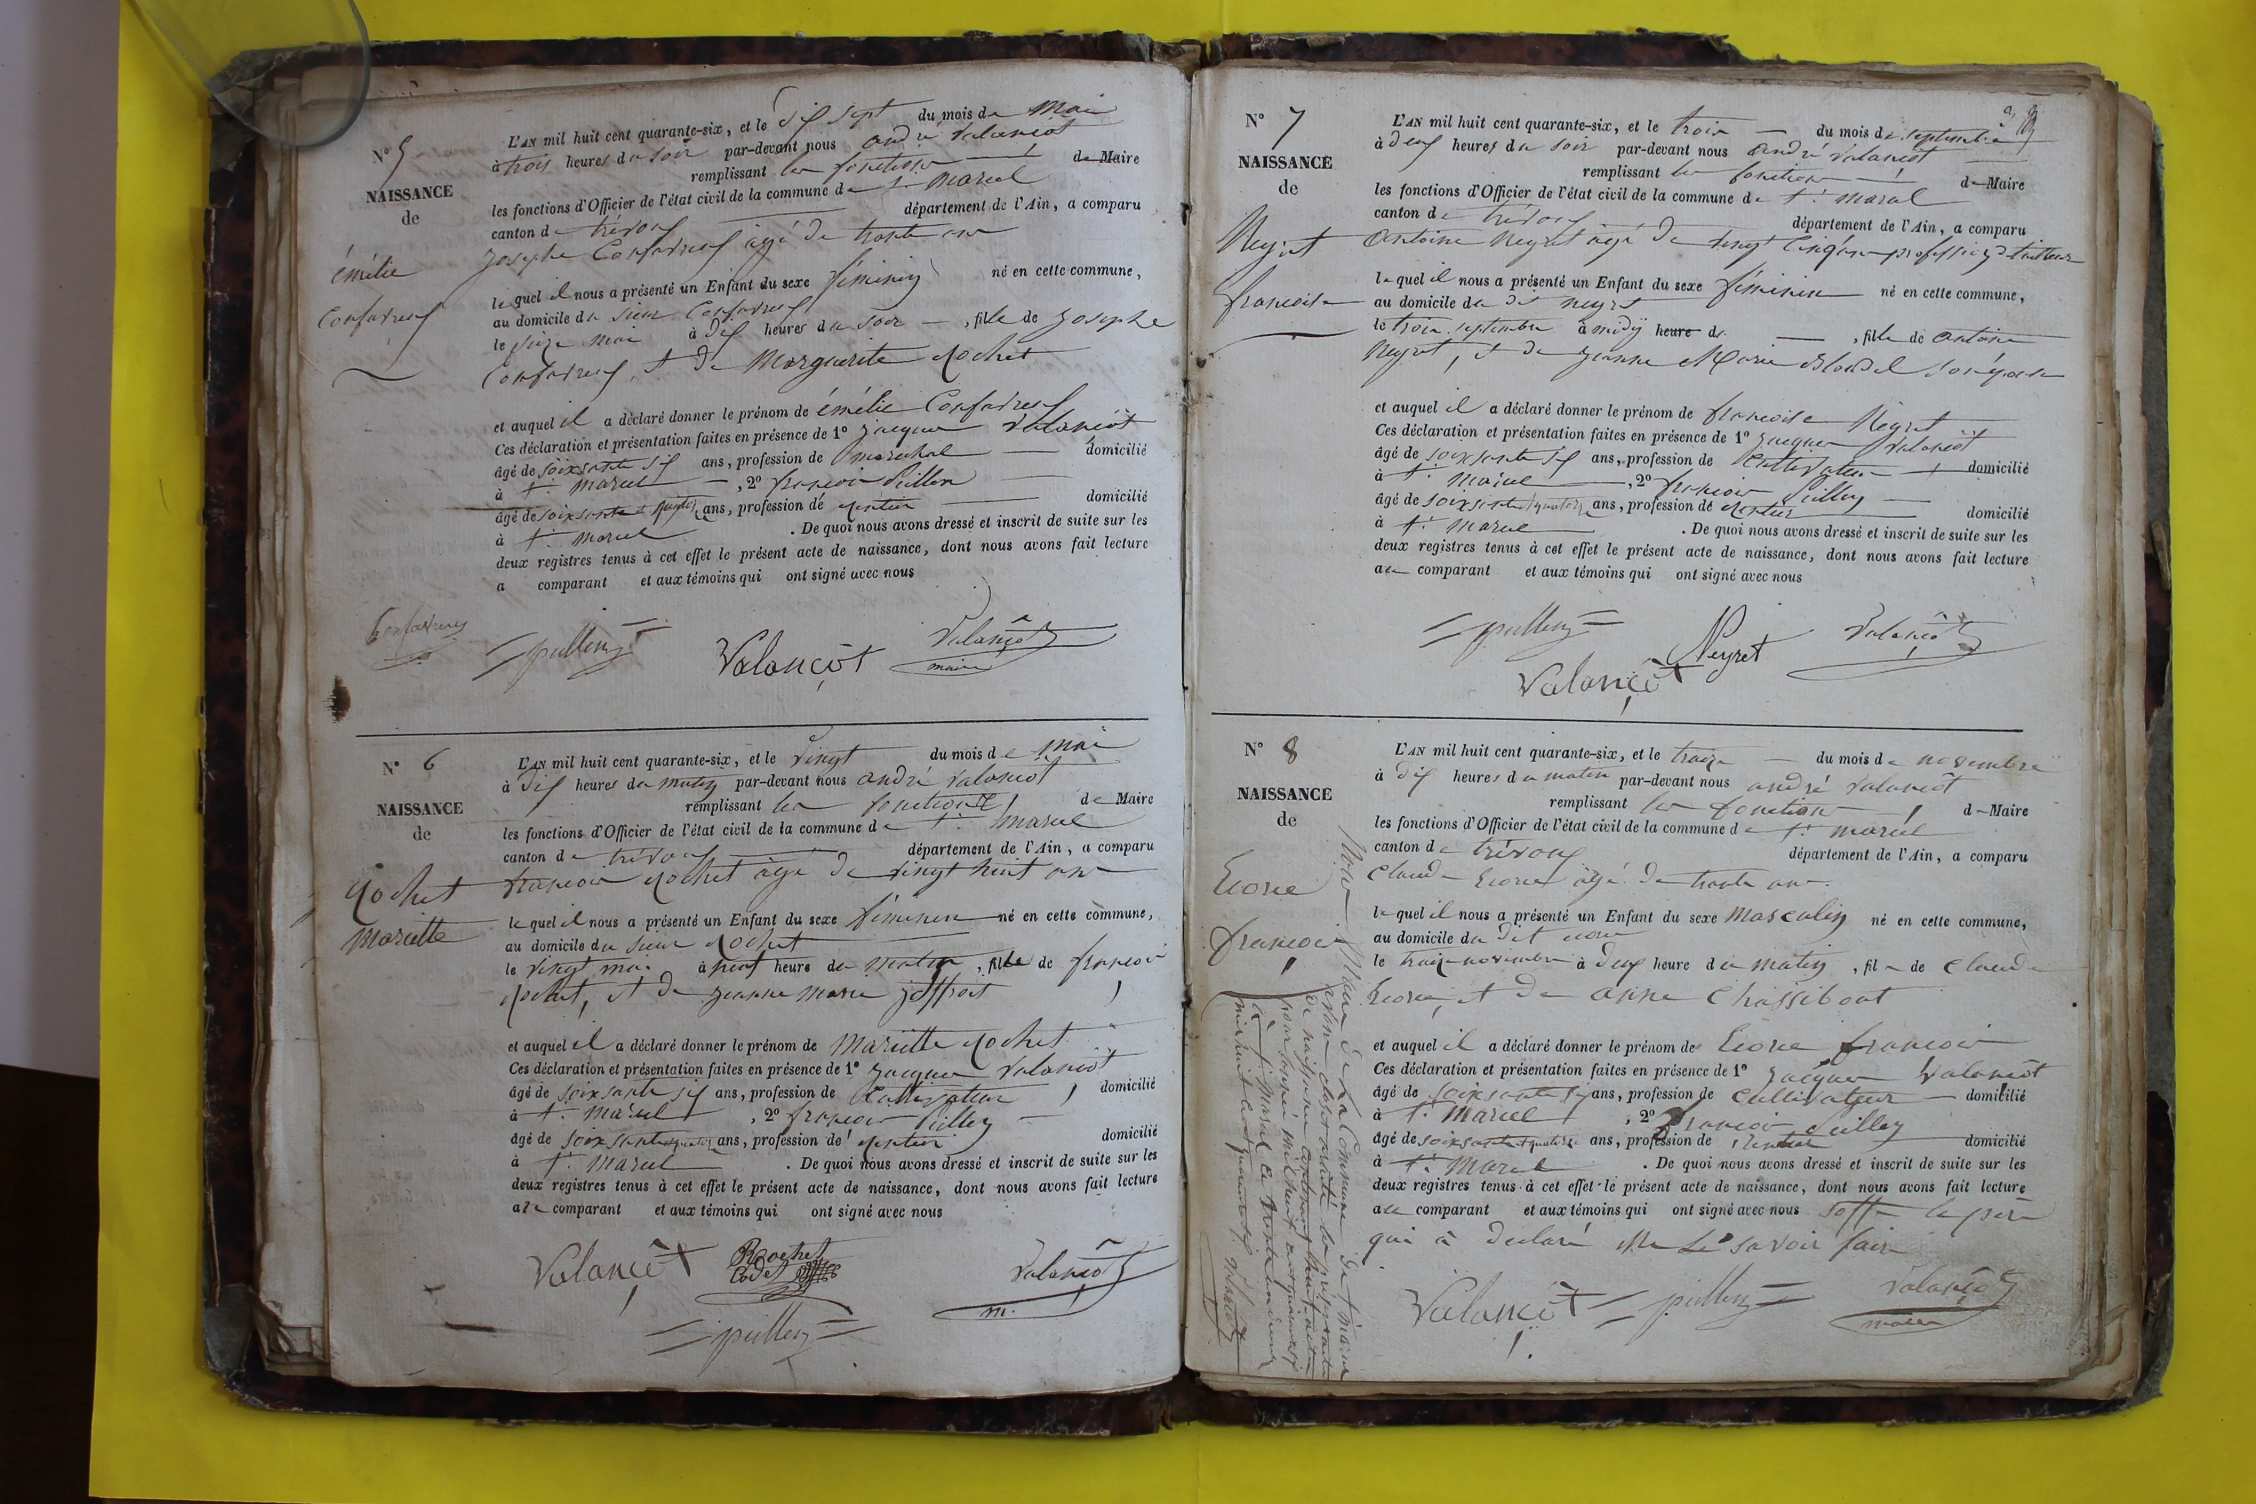 N° 5
NAISSANCE
de
émélie
Confavreux
L'AN mil huit cent quarante-six, et le dix sept du mois de Mai
à trois heures du soir par-devant nous andré Valançot
remplissant les fonctions de Maire
les fonctions d'Officier de l'état civil de la commune de St. Marcel
canton de trévoux département de l'Ain, a comparu
Josephe Confavreux agé de trente ans
lequel il nous a présenté un Enfant du sexe féminin né en cette commune,
au domicile du sieur Confavreux
le seize mai à dix heures du soir, fille de Josephe
Confavreux, et de Marguerite Rochet
et auquel il a déclaré donner le prénom de émélie Confavreux
Ces déclaration et présentation faites en présence de 1° Jacques Valançot
âgé de soixsante six ans, profession de marechal domicilié
à St. Marcel, 2° francois Pillon
âgé de soixsante quatorze ans, profession de rentier domicilié
à St. Marcel. De quoi nous avons dressé et inscrit de suite sur les
deux registres tenus à cet effet le présent acte de naissance, dont nous avons fait lecture
a comparant et aux témoins qui ont signé avec nous
Confavreux
Valançot
Valançot
maire
N° 6
NAISSANCE
de
Rochet
Mariette
L'AN mil huit cent quarante-six, et le Vingt du mois de mai
à dix heures du matin par-devant nous andré Valançot
remplissant les fonctions de Maire
les fonctions d'Officier de l'état civil de la commune de St. Marcel
canton de trévoux département de l'Ain, a comparu
francois Rochet agé de vingt huit ans
lequel il nous a présenté un Enfant du sexe féminin né en cette commune,
au domicile du sieur Rochet
le vingt mai à neuf heure du matin, fille de francois
Rochet, et de Jeanne Marie joffroit
et auquel il a déclaré donner le prénom de Mariette Rochet
Ces déclaration et présentation faites en présence de 1° Jacques Valançot
âgé de soixsante six ans, profession de Cultivateur domicilié
à St. Marcel, 2° francois
âgé de soixsante quatorze ans, profession de rentier domicilié
à St. Marcel. De quoi nous avons dressé et inscrit de suite sur les
deux registres tenus à cet effet le présent acte de naissance, dont nous avons fait lecture
au comparant et aux témoins qui ont signé avec nous
Valançot
Rochet
Cadet
Valançot
m.
N° 7
NAISSANCE
de
Neyret
francoise
L'AN mil huit cent quarante-six, et le trois du mois de septembre
à deux heures du soir par-devant nous André Valançot
remplissant les fonctions de Maire
les fonctions d'Officier de l'état civil de la commune de St. Marcel
canton de trévoux département de l'Ain, a comparu
Antoine Neyret agé de vingt Cinq ans profession tailleur
lequel il nous a présenté un Enfant du sexe féminin né en cette commune,
au domicile du dit neyret
le trois septembre à midy heure d, fille de Antoine
Neyret, et de Jeanne Marie
et auquel il a déclaré donner le prénom de francoise Neyret
Ces déclaration et présentation faites en présence de 1° Jacques Valançot
âgé de soixsante six ans, profession de Cultivateur domicilié
à St. Marcel, 2° francois
âgé de soixsante quatorze ans, profession de Rentier domicilié
à St. Marcel. De quoi nous avons dressé et inscrit de suite sur les
deux registres tenus à cet effet le présent acte de naissance, dont nous avons fait lecture
au comparant et aux témoins qui ont signé avec nous
Neyret
Valançot
Valançot
N° 8
NAISSANCE
de
francois
L'AN mil huit cent quarante-six, et le treize du mois de novembre
à dix heures du matin par-devant nous andré Valançot
remplissant les fonctions de Maire
les fonctions d'Officier de l'état civil de la commune de St. Marcel
canton de trévoux département de l'Ain, a comparu
Claude agé de trente ans
lequel il nous a présenté un Enfant du sexe Masculin né en cette commune,
au domicile du dit
le treize novembre à deux heure du matin, fil de Claude
et de Anne Chassibout
et auquel il a déclaré donner le prénom de francois
Ces déclaration et présentation faites en présence de 1° Jacques Valançot
âgé de soixsante six ans, profession de Cultivateur domicilié
à St. Marcel, 2° francois
âgé de soixsante quatorze ans, profession de rentier domicilié
à St. Marcel. De quoi nous avons dressé et inscrit de suite sur les
deux registres tenus à cet effet le présent acte de naissance, dont nous avons fait lecture
au comparant et aux témoins qui ont signé avec nous le père
qui a déclaré savoir faire
Valançot
Valançot
maire
Nous Maire de la Commune de St Marcel
avons clos arreté le présent
de naissance contenant huit actes
pour l'année mil huit cent quarante six
à St. Marcel le trente un decembre
mil huit cent quarante six Valançot